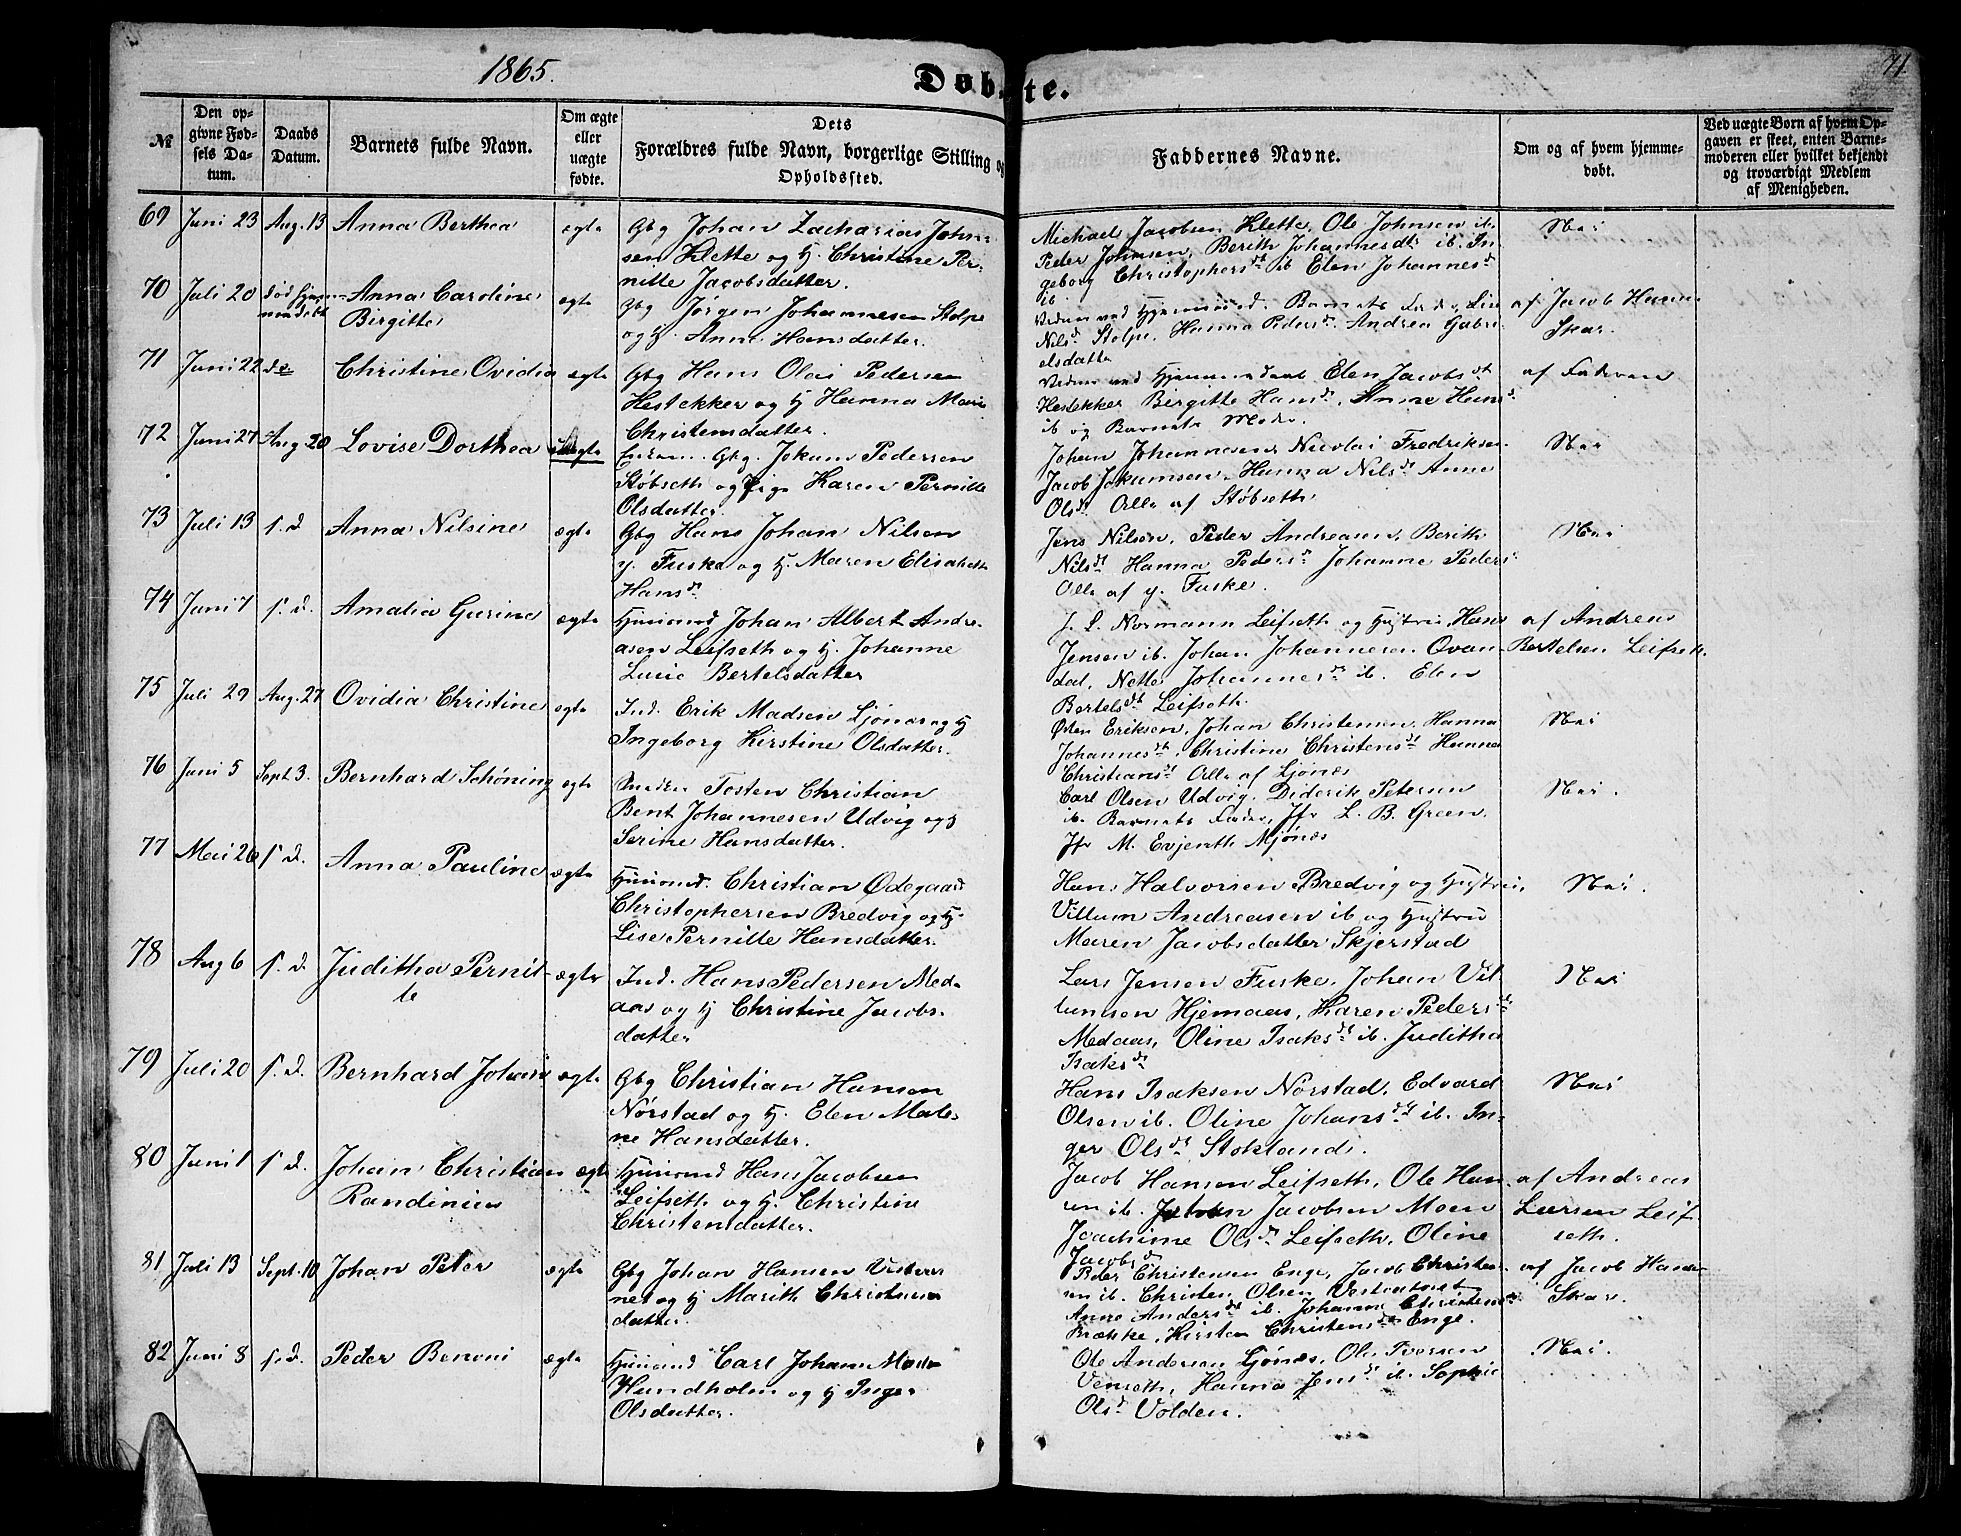 1865.
Døbte.
71
№
Den opgivne Fødsels Datum.
Daabs Datum.
Barnets fulde Navn.
Om ægte eller uægte fødte.
Dets Forældres fulde Navn, borgerlige Stilling og Opholdssted.
Faddernes Navne.
Om og af hvem hjemmedøbt.
Ved uægte Børn af hvem Opgaven er skeet, enten Barnemoderen eller hvilket bekjendt og troværdigt Medlem af Menigheden.
69 Juni 23 Aug. 13 Anna Berthea ægte
Gbg Johan Zacharias John-
sen Klette og H. Christine Per-
nille Jacobsdatter.
Michael Jacobsen Klette, Ole Johnsen ib.
Peder Johnsen, Berith Johannesdtr ib. In-
geborg Christophersdt ib Elen Johannesd
ib.
Nei
70 Juli 20 død hjem- Anna Caroline ægte
Birgitte
Gbg Jørgen Johannesen Stolpe
og H. Anne Hansdatter.
Barnets Fader,
Nilsd Stolpe, Hanna Pedersd. Andrea Gabri-
elsdatter
af Jacob Hansen
Skar.
71 Juni 22 do Christine Ovidia ægte
Gbg Hans Olai Pedersen
Hestekker og H Hanna Marie
Christensdatter.
Vidner ved Hjemmedaab Elen Jacobsdt
Hestekker Bergitte Hansd, Anne Hansd.
ib og Barnets Moder.
af Faderen
72 Juni 27 Aug 20 Lovise Dorthea uægte
Gbg. Jokum Pedersen
Støbseth og Pige Karen Pernille
Olsdatter.
Johan Johannesen, Nicolai Fredriksen
Jacob Jokumsen, Hanna Nilsdt Anne
Olsdt Alle af Støbseth
Nei
73 Juli 13 s. d Anna Nilsine ægte
Gbg Hans Johan Nilsen
y. Fuske og H. Maren Elisabeth
Hansdt
Jens Nilsen, Peder Andreasen, Berith
Nilsdt Hanna Pedersdt Johanne Peders
Alle af y. Fuske.
Nei
74 Juni 7 s. d. Amalia Gurine ægte
Husmand Johan Albert Andre-
asen Leifseth og H. Johanne
Lucie Bertelsdatter
J. L. Normann Leifseth og Hustru, Hans
Jensen ib. Johan Johannesen Ovan-
dal, Nette Johannesdt ib. Elen
Bertelsdt Leifseth.
af Andreas
Bertelsen Leifseth
75 Juli 29 Aug. 27 Ovidia Christine ægte
Ind. Erik Madsen Ljønæs og H
Ingeborg Kirstine Olsdatter.
Østen Eriksen, Johan Christensen, Hanna
Johannesdt, Christine Christensdt Hanna
Christiansdt Alle af Ljønæs
Nei
76 Juni 5 Sept 3. Bernhard Schöning ægte
Tosten Christian
Bent Johannesen Udvig og H
Serine Hansdatter.
Carl Olsen Udvig, Diderik Petersen
ib. Barnets Fader, Jfr L. B. Green,
Jfr M. Evjenth Mjønæs
Nei.
77 Mai 26 s. d. Anna Pauline ægte
Husmand. Christian Ødegaard
Christophersen Bredvig og H.
Lise Pernille Hansdatter.
Hans Halvorsen Bredvig og Hustru,
Villum Andreasen ib og Hustru
Maren Jacobsdatter Skjerstad
Nei.
78 Aug 6 s. d Juditha Pernil- ægte
le
Ind. Hans Pedersen Med-
aas og H Christine Jacobs-
datter
Lars Jensen Fuske, Johan Vil-
lumsen Hjemaas, Karen Pedersdt
Medaas, Oline Isaksdt ib. Juditha
Isaksdt
Nei
79 Juli 20 s. d. Bernhard Johan ægte
Gbg Christian Hansen
Nørstad og H. Elen Male-
ne Hansdatter.
Hans Isaksen Nørstad, Edvard
Olsen ib. Oline Johansdt ib. In-
ger Olsdt Stokland.
Nei
80 Juni 1 s. d. Johan Christian ægte
Randinius
Husmand Hans Jacobsen
Leifseth og H. Christine
Christensdatter.
Jacob Hansen Leifseth, Ole Han-
sen ib. Johan Jacobsen Moen
Joachime Olsdt Leifseth, Oline
Jacobsdt
af Andreas
Larsen Leif-
seth.
81 Juli 13 Sept. 10 Johan Peter ægte
Gbg Johan Hansen
og H Marith Christens-
datter.
Peder Christensen Enge, Jacob Christen-
sen ib. Christen Olsen
Anne Andersdt ib. Johanna Christensd
Brække, Kirsten Christensdt Enge.
af Jacob Hansen
Skar.
82 Juni 8 s. d. Peder Benoni ægte
Husmand Carl Johan
Hundholm og H Inger
Olsdatter.
Ole Andersen Ljønæs, Ole Iversen
Venseth, Hanna Jensdt ib. Sophie
Olsdt Volden.
Nei